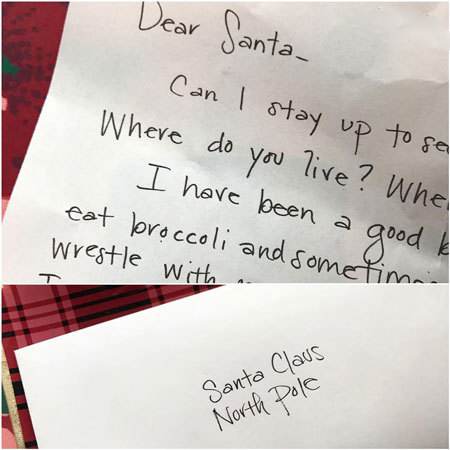 Dear Santa-
Can I stay up to
Where do you live?
I have been a good
eat broccoli and
wrestle with
Santa Claus
North Pole